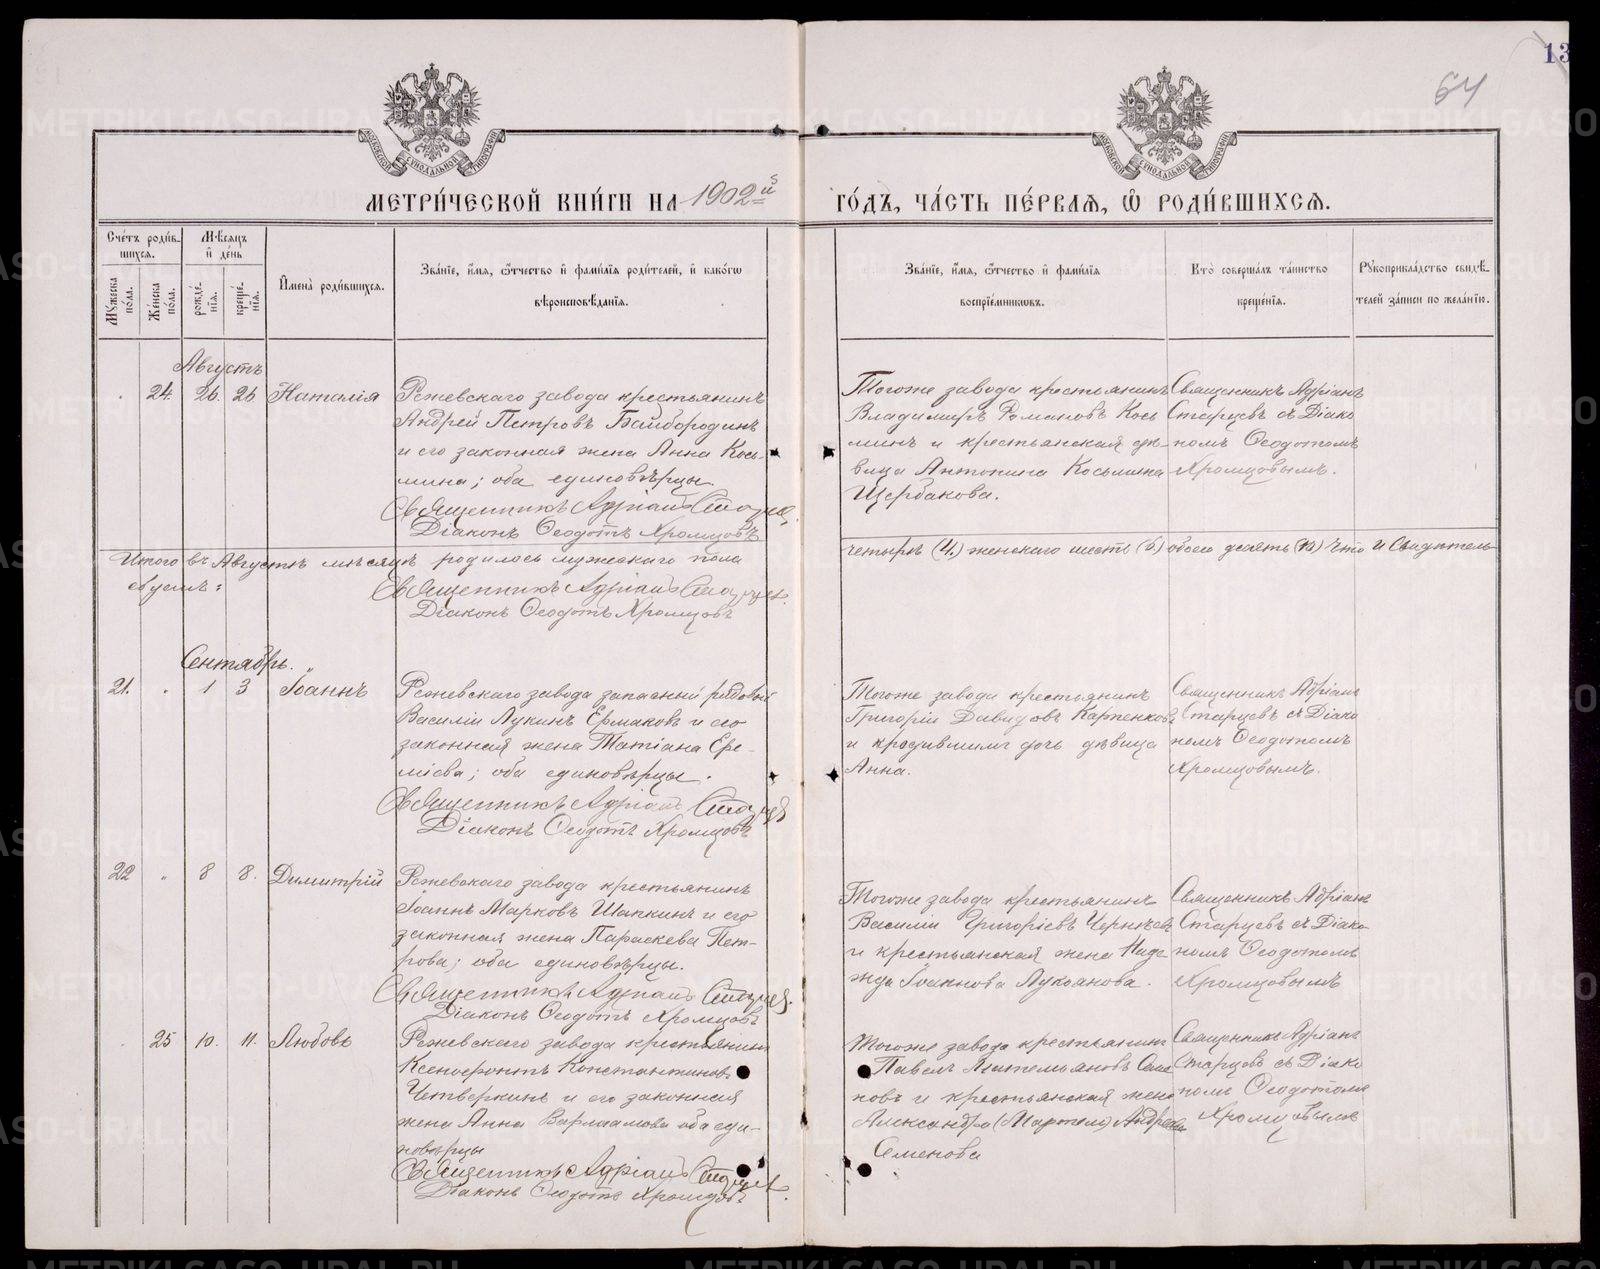 13
64
МОСКОВСКОЙ СѴНОДАЛЬНОЙ ТИПОГРАФІИ
МОСКОВСКОЙ СѴНОДАЛЬНОЙ ТИПОГРАФІИ
МЕТРИ́ЧЕСКОЙ КНИ́ГИ НА 1902й
ГО́ДЪ, ЧА́СТЬ ПЕ́РВАЯ, Ѡ РОДИ́ВШИХСЯ.
Сче́тъ роди́в-
шихся.
Му́жеска по́ла.
Же́нска по́ла.
Мѣ́сяцъ и де́нь
рожде́нія.
креще́нія.
Имена̀ роди́вшихся.
Зва́ніе, и́мя, ѻ҆́тчество и҆ фами́лія роди́телей, и҆ како́гѡ
вѣроисповѣ́данія.
Зва́ніе, и́мя, ѻ҆́тчество и҆ фами́лія
воспріе́мникѡвъ.
Кто̀ соверша́лъ та́инство
креще́нія.
Рꙋкоприкла́дство свидѣ́-
телей за́писи по жела́нію.
Августъ
24. 26. 26 Наталія
Режевскаго завода крестьянинъ
Андрей Петровъ Байбородинъ
и его законная жена Анна Кось-
мина; оба единовѣрцы.
Священникъ Адріанъ Старцевъ
Діаконъ Ѳеодотъ Хромцовъ
Тогоже завода крестьянинъ
Владимиръ Романовъ Кось
минъ и крестьянская дѣ-
вица Антонина Косьмина
Щербакова.
Священникъ Адріанъ
Старцевъ съ Діако
номъ Ѳеодотомъ
Хромцовымъ.
Итого въ Августѣ мѣсяцѣ родилось мужескаго пола
четыре (4,) женскаго шесть (6) обоего десять (10) Что и Свидѣтель-
ствуемъ:
Священникъ Адріанъ Старцевъ
Діаконъ Ѳеодотъ Хромцовъ
Сентябрь.
21. „ 1 3 Іоаннъ
Режевскаго завода запасный рядовой
Василій Лукинъ Ермаковъ и его
законная жена Татіана Ере-
міева; оба единовѣрцы.
Священникъ Адріанъ Старцевъ
Діаконъ Ѳеодотъ Хромцовъ
Тогоже завода крестьянинъ
Григорій Давидовъ Картенковъ
и крестьянина дочь дѣвица
Анна.
Священникъ Адріанъ
Старцевъ съ Діако
номъ Ѳеодотомъ
Хромцовымъ.
22 „ 8 8. Димитрій
Режевскаго завода крестьянинъ
Іоаннъ Марковъ Шапкинъ и его
законная жена Параскева Пет-
рова; оба единовѣрцы.
Священникъ Адріанъ Старцевъ.
Діаконъ Ѳеодотъ Хромцовъ
Тогоже завода крестьянинъ
Василій Григоріевъ Чернѣевъ
и крестьянская жена Наде
жда Іоаннова Лукоянова.
Священникъ Адріанъ
Старцевъ съ Діако-
номъ Ѳеодотомъ
Хромцовымъ
25 10. 11. Любовь
Режевскаго завода крестьянинъ
Ксенофонтъ Константиновъ
Четверкинъ и его законная
жена Анна Варлаамова оба еди-
новѣрцы
Священникъ Адріанъ Старцевъ.
Діаконъ Ѳеодотъ Хромцовъ
Тогоже завода крестьянинъ
Павелъ Пантелеймоновъ Семе
новъ и крестьянская жена
Александра Андреева
Семенова
Священникъ Адріанъ
Старцевъ съ Діако
номъ Ѳеодотомъ
Хромцовымъ
METRIKI.GASO-URAL.RU